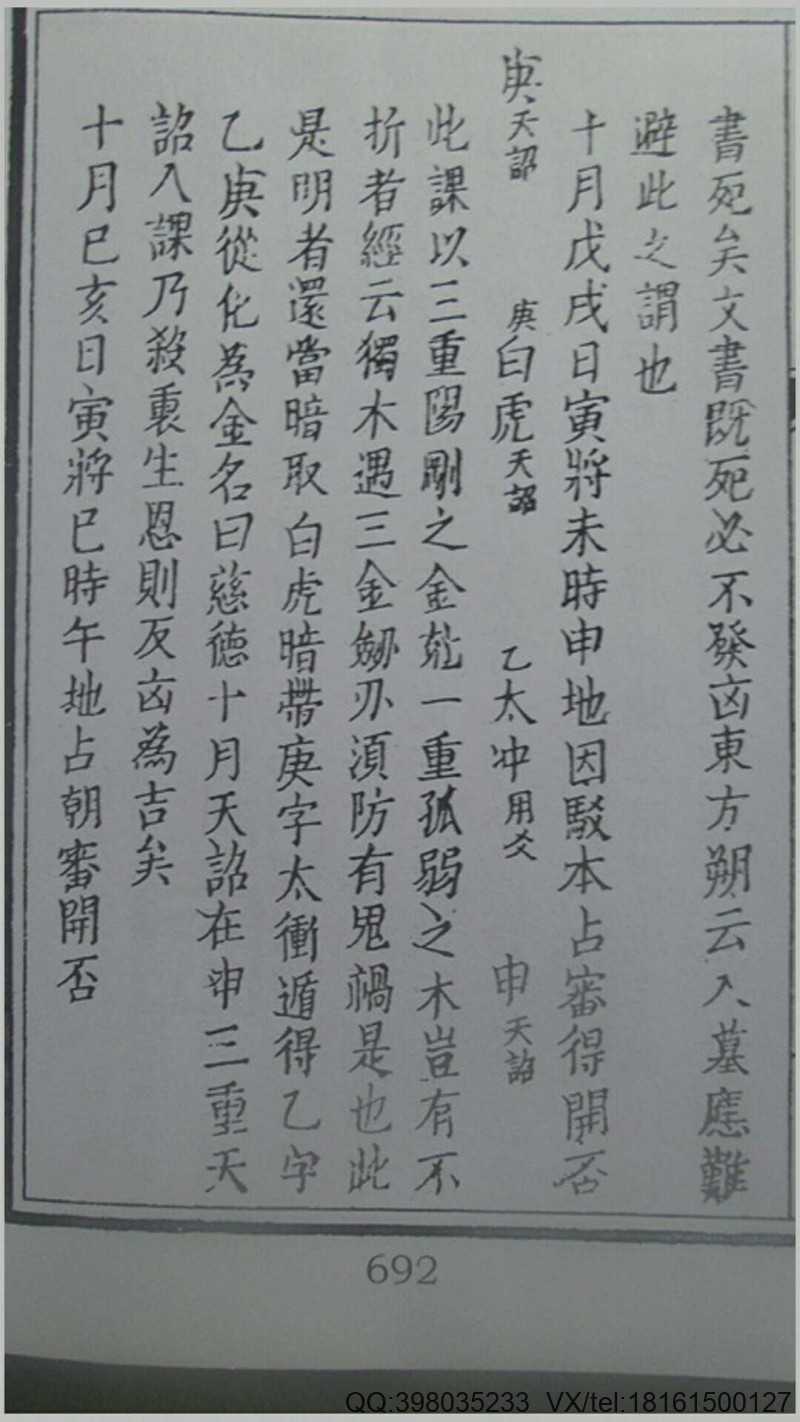 書死矣文書既死必不發凶東方朔云入墓應難
避此之謂也
十月戊戌日寅將未時申地因駁本占審得開否
庚天詔 庚白虎天詔 乙太冲用爻 申天詔
此課以三重陽剛之金尅一重孤弱之木豈有不
折者經云獨木遇三金劒刃須防有鬼禍是也此
是明者還當暗取白虎暗帶庚字太衝遁得乙字
乙庚從化為金名曰慈德十月天詔在申三重天
詔入課乃殺重生恩則反凶為吉矣
十月己亥日寅將巳時午地占朝審開否
692
QQ:398035233 VX/tel:18161500127